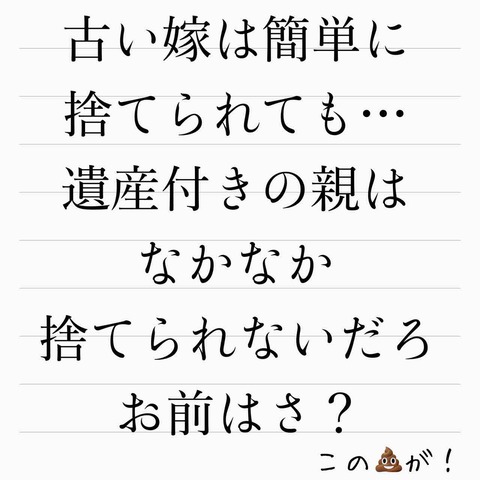 古い嫁は簡単に
捨てられても…
遺産付きの親は
なかなか
捨てられないだろ
お前はさ？
この💩が！